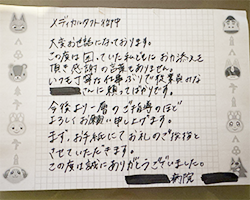 メディカルタクト 御中
大変お世話になっております。
この度は困っていた私どもにお力添えを
頂き感謝の言葉もありません。
いつも丁寧な仕事ぶりで牧業
さんに頼ってばかりです。
今後より一層のご指導のほど
よろしくお願い申し上げます。
まず、お手紙にてお礼のご挨拶と
させていただきます。
この度は誠にありがとうございました。
病院